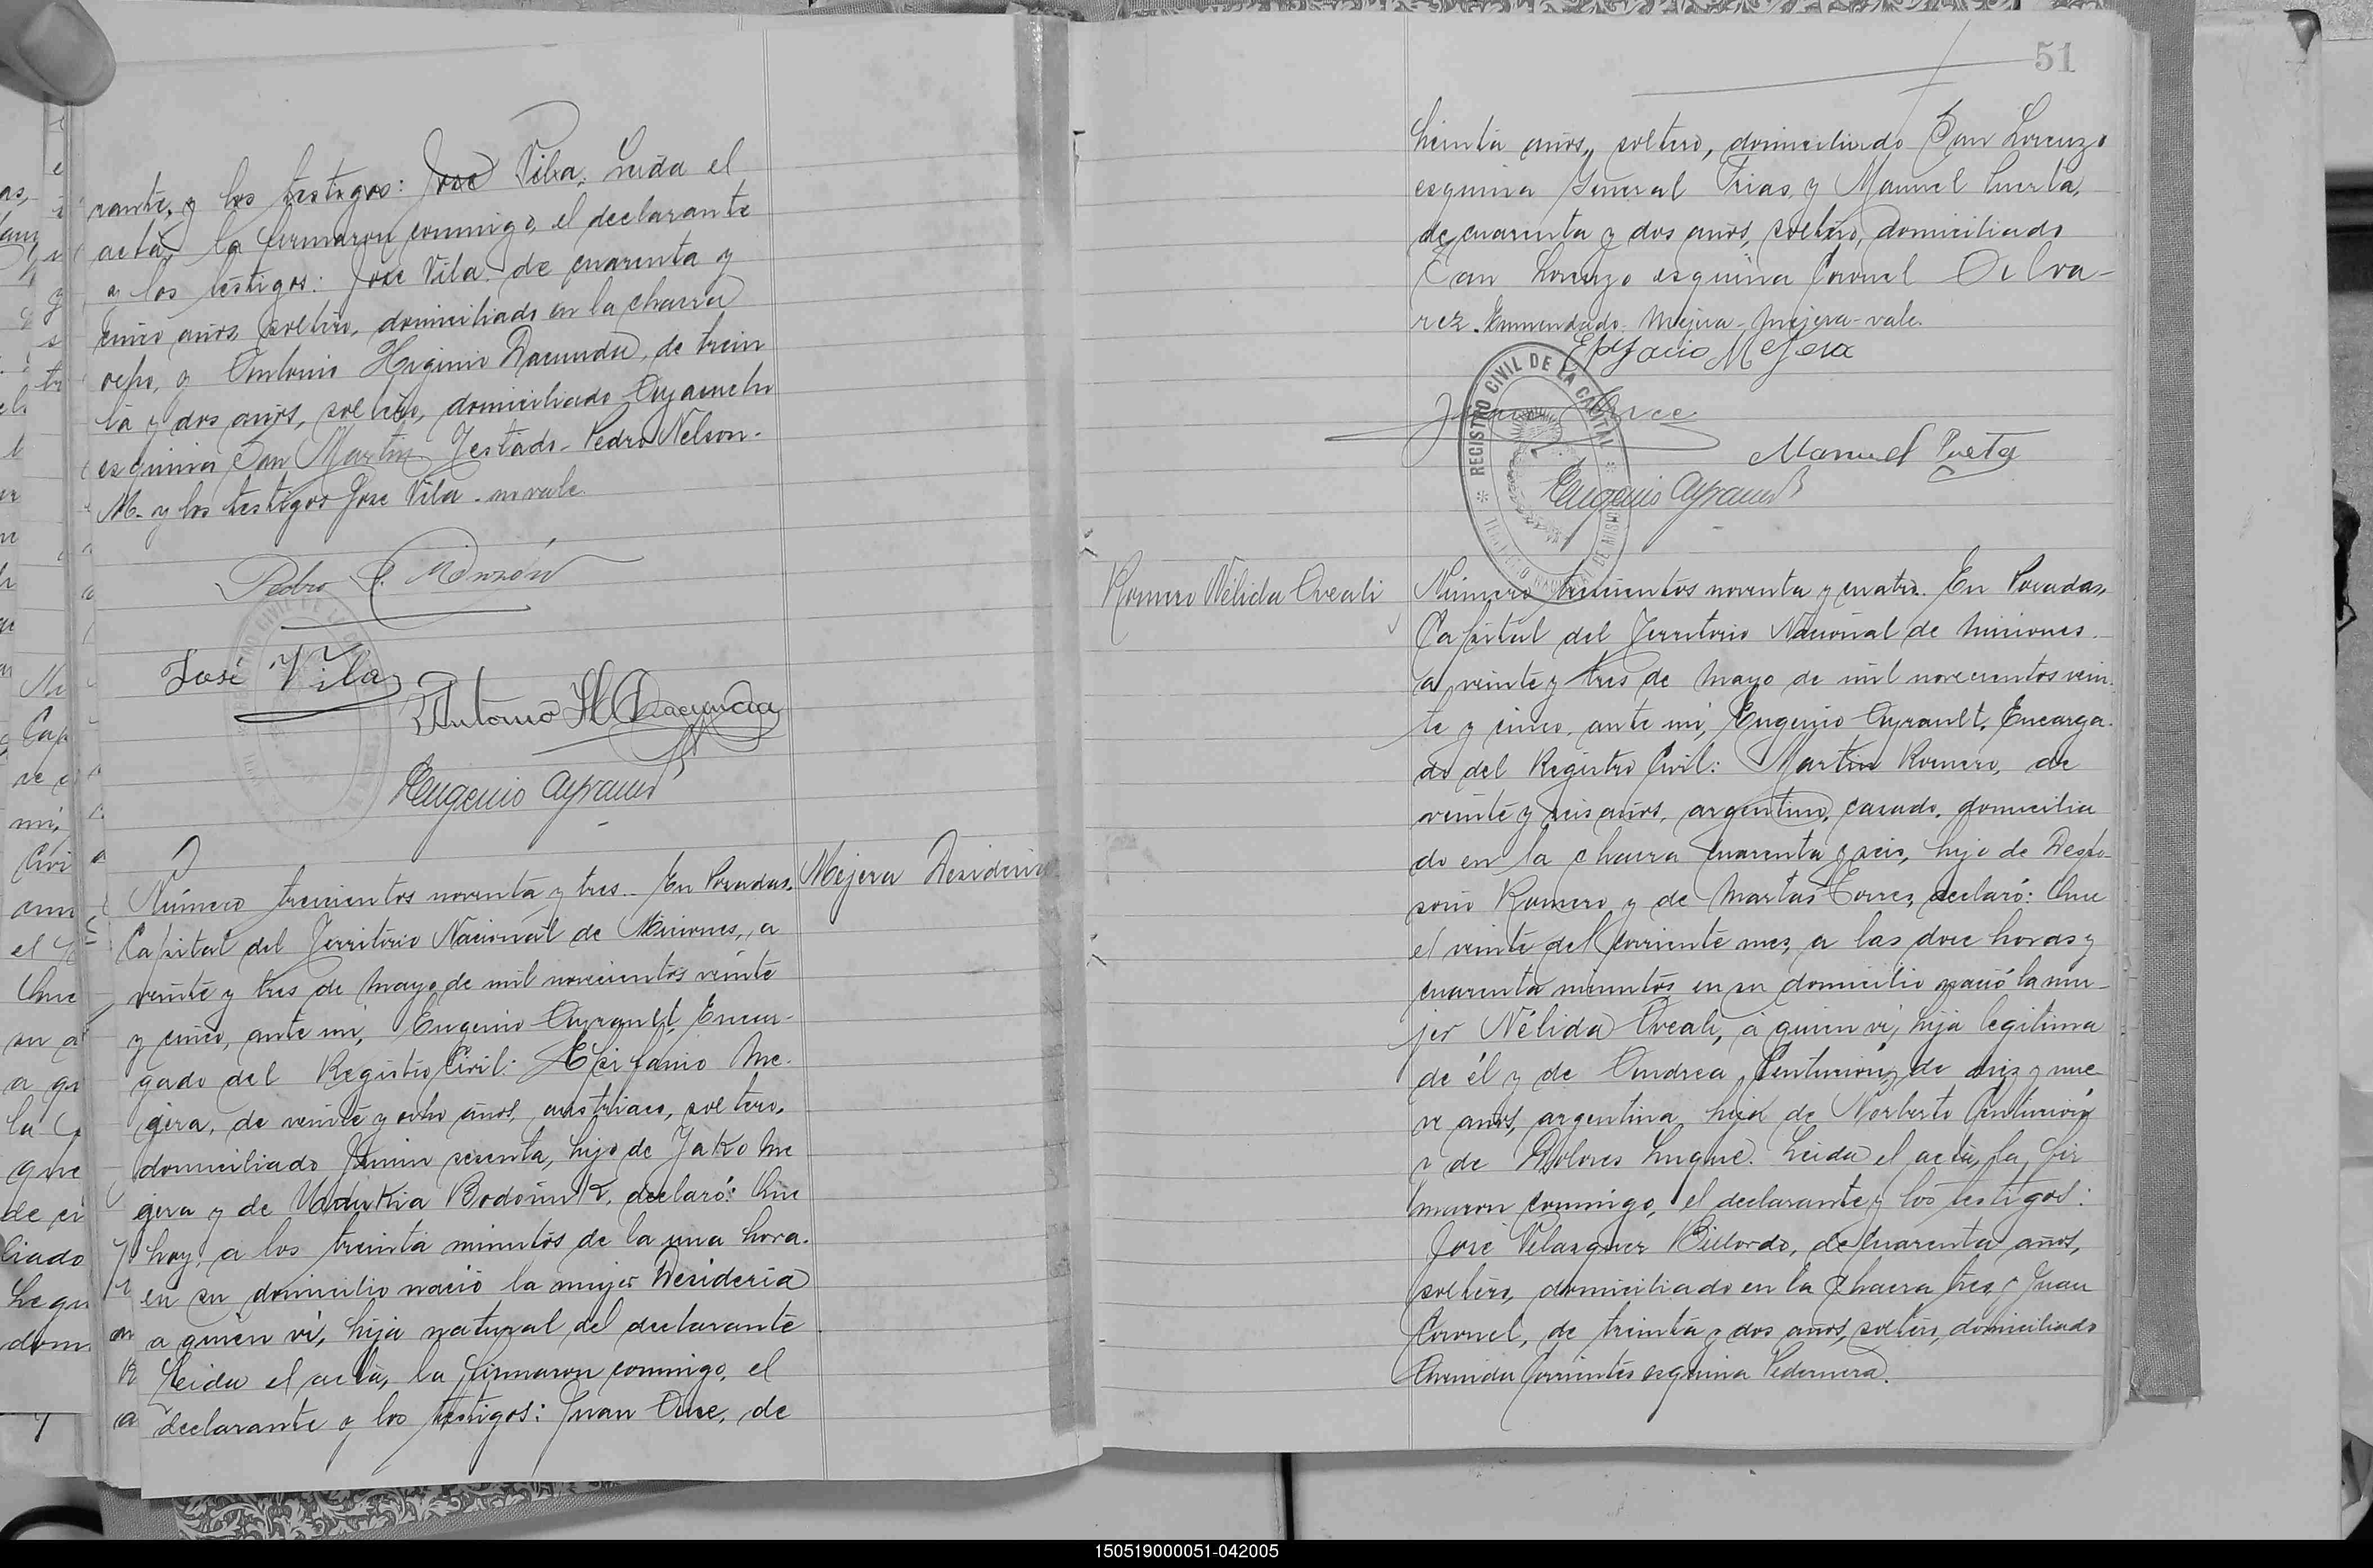 rante, y los testigos: José Vila. Leida el
acta, la firmaron conmigo, el declarante
y los testigos: José Vila de cuarenta y
cinco años, soltero, domiciliado en la chacra
ocho, y Antonio Higinio Dacunda, de trein
ta y dos años, soltero, domiciliado Ayacucho
esquina San Martin. Testado - Pedro Nelson -
M - y los testigos Jose Vila - no vale.
Pedro Monzón
José Vila
Antonio H Dacunda
Eugenio Ayrault
Mejera Desideria
Número trecientos noventa y tres. En Posadas,
Capital del Territorio Nacional de Misiones, a
veinte y tres de mayo de mil novecientos veinte
y cinco, ante mi, Eugenio Ayrault, Encar-
gado del Registro Civil: Epifanio Me-
gera, de veinte y ocho años, austriaco, soltero,
domiciliado Junin sesenta, hijo de Jako Me
gera y de declaró: Que
hoy, a los treinta minutos de la una hora.
en su domicilio nació la mujer Desideria
a quien vi, hija natural del declarante
Leida el acta, la firmaron conmigo, el
declarante y los testigos: Juan Arce, de
51
treinta años, soltero, domiciliado San Lorenzo
esquina General Frias, y Manuel Puerta,
de cuarenta y dos años, soltero, domiciliado
San Lorenzo esquina Coronel Alva-
rez. Enmendado - Mejera - Mejera - vale.
Epifacio Mejera
Juan Arce
Manuel Pueta
Eugenio Ayrault
REGISTRO CIVIL DE LA CAPITAL
TERRITORIO NACIONAL DE MISIONES
Romero Nélida Oveali
Número trecientos noventa y cuatro. En Posadas,
Capital del Territorio Nacional de Misiones.
a, veinte y tres de mayo de mil novecientos vein
te y cinco, ante mi, Eugenio Ayrault, Encarga-
do del Registro Civil: Martin Romero, de
veinte y seis años, argentino, casado, domicilia
do en la chacra cuarenta y seis, hijo de Despo-
sorio Romero y de Martas Torres, declaró: Que
el veinte del corriente mes, a las doce horas y
cuarenta minutos en su domicilio nació la mu-
jer Nélida Oveali, a quien vi, hija legitima
de él y de Andrea Centurión, de diez y nue
ve años, argentina, hija de Norberto Centurión
y de Dolores Luque. Leida el acta, la fir
maron conmigo, el declarante y los testigos:
José Velazquez Billordo, de cuarenta años,
soltero, domiciliado en la chacra tres, y Juan
Coronel, de treinta y dos años, soltero, domiciliado
Avenida Corrientes esquina Pedernera.
150519000051-042005